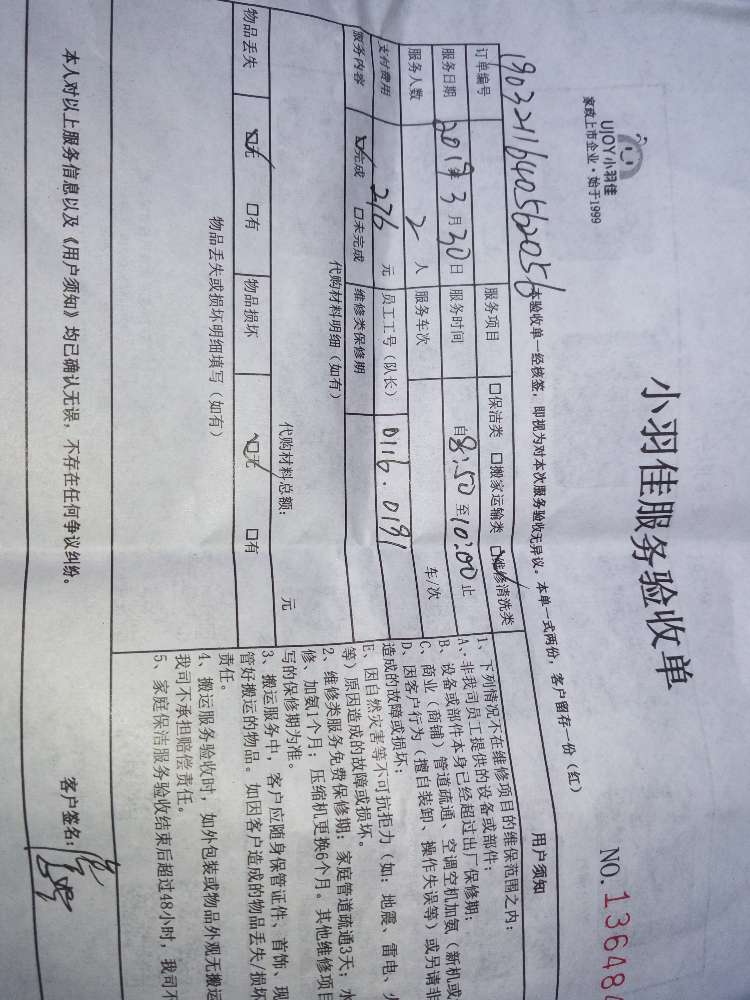 UJOY小羽佳
家政上市企业·始于1999
小羽佳服务验收单
NO.136484
本验收单一经核签，即视为对本次服务验收无异议。本单一式两份，客户留存一份（红）
订单编号
服务项目 □保洁类 □搬家运输类 ☑维修清洗类
服务日期 2019年3月30日 服务时间 自8:50至10:00止
服务人数 2人 服务车次 车/次
支付费用 276元 员工工号（队长） 0116.0191
服务内容 ☑完成 □未完成 维修类保修期
代购材料明细（如有）
代购材料总额： 元
物品丢失 ☑无 □有 物品损坏 ☑无 □有
物品丢失或损坏明细填写（如有）
用户须知
1、下列情况不在维修项目的维保范围之内：
A、非我司员工提供的设备或部件；
B、设备或部件本身已经超过出厂保修期；
C、商业（商铺）管道疏通、空调空机加氨（新机或
D、因客户行为（擅自装卸、操作失误等）或另请非
造成的故障或损坏；
E、因自然灾害等不可抗拒力（如：地震、雷电、
等）原因造成的故障或损坏。
2、维修类服务免费保修期：家庭管道疏通3天；水
修、加氨1个月；压缩机更换6个月。其他维修项目
写的保修期为准。
3、搬运服务中，客户应随身保管证件、首饰、现
管好搬运的物品。如因客户造成的物品丢失/损坏
责任。
4、搬运服务验收时，如外包装或物品外观无搬运
我司不承担赔偿责任。
5、家庭保洁服务验收结束后超过48小时，我司不
本人对以上服务信息以及《用户须知》均已确认无误，不存在任何争议纠纷。
客户签名：